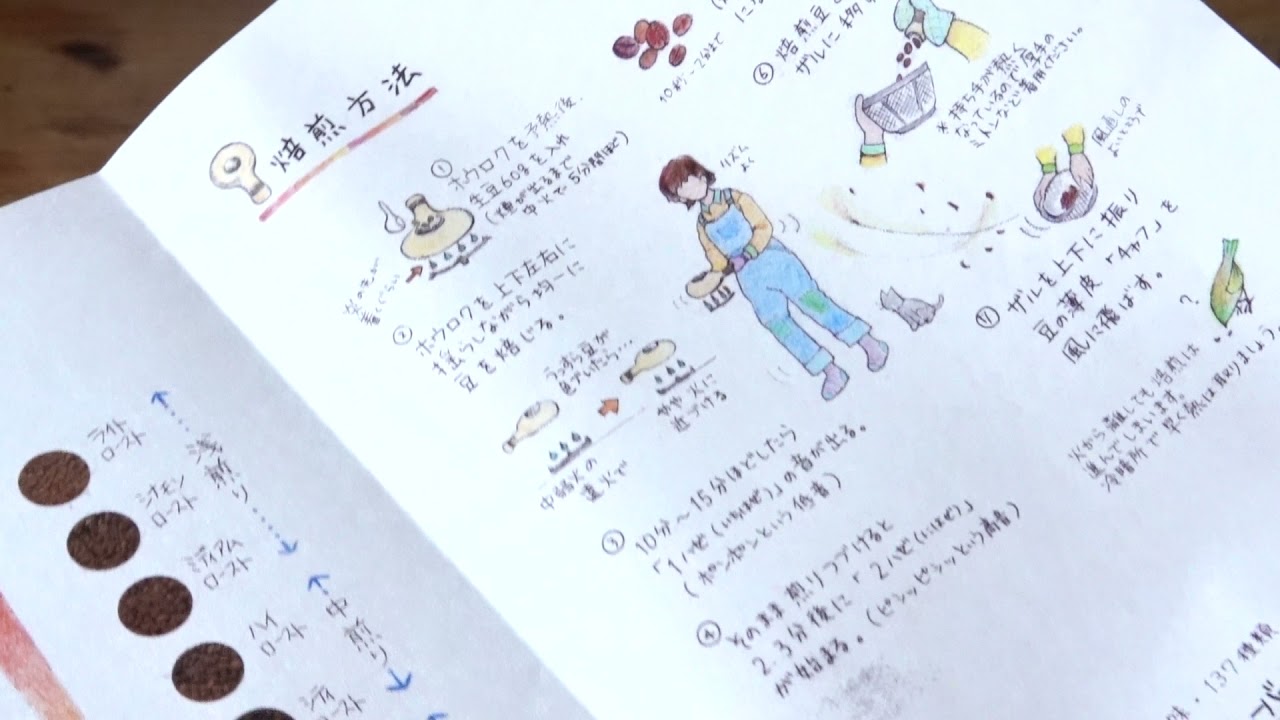 焙煎方法
①
ホウロクを予熱後、
生豆60gを入れ
(煙が出るまで
中火で5分間ほど)
②
ホウロクを上下左右に
揺らしながら均一に
豆を焙じる。
うっすら豆が
色づいたら…
中弱火の
遠火で
やや火に
近づける
リズム
よく
③ 10分〜15分ほどしたら
「1ハゼ(いちはぜ)」の音が出る。
(ポンポンという低音)
④ そのまま煎りつづけると
2.3分後に「2ハゼ(にはぜ)」
が始まる。(ピシッピシッという高音)
10秒〜2分まで
⑥ 焙煎豆を
ザルに移す
*持ち手が熱く
なっているので厚手の
ミトンなど着用ください。
風通しの
よいところで
⑦ ザルを上下に振り
豆の薄皮「チャフ」を
風に飛ばす。
?
火から離しても焙煎は
進んでしまいます。
冷暗所で早く熱は取りましょう。
ライト
ロースト
シナモン
ロースト
浅煎り
ミディアム
ロースト
ハイ
ロースト
中煎り
シティ
ロースト
137種類